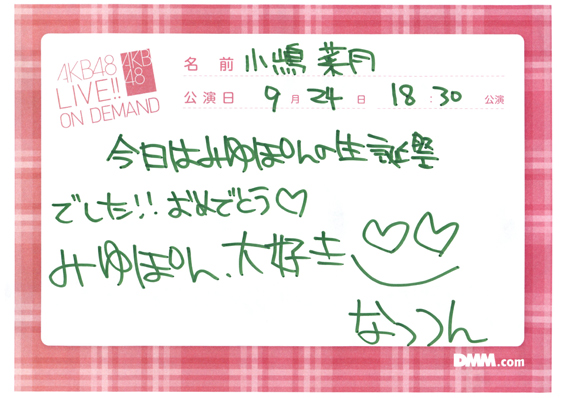 AKB48
LIVE!!
ON DEMAND
AKB
48
名 前 小嶋 菜月
公演日 9月24日 18:30公演
今日はみゆぽんの生誕祭
でした!!おめでとう♡
みゆぽん、大好き
なっつん
DMM.com